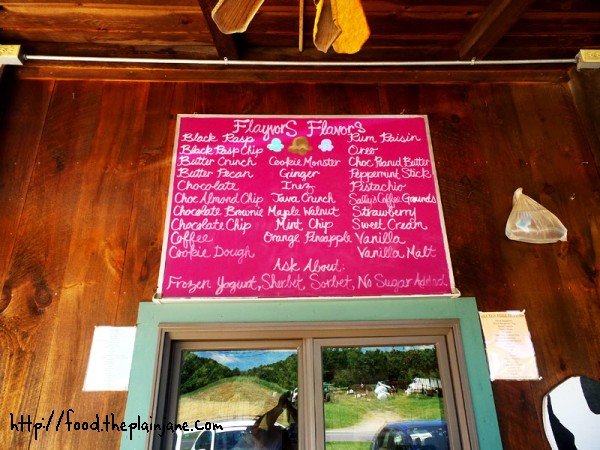 Flayvors Flavors
Black Rasp
Black Rasp Chip
Butter Crunch
Butter Pecan
Chocolate
Choc Almond Chip
Chocolate Brownie
Chocolate Chip
Coffee
Cookie Dough
Cookie Monster
Ginger
Inez
Java Crunch
Maple Walnut
Mint Chip
Orange Pineapple
Rum Raisin
Oreo
Choc Peanut Butter
Peppermint Stick
Pistachio
Salty's Coffee Grounds
Strawberry
Sweet Cream
Vanilla
Vanilla Malt
Ask About:
Frozen Yogurt, Sherbet, Sorbet, No Sugar Added
http://food.theplainjane.com